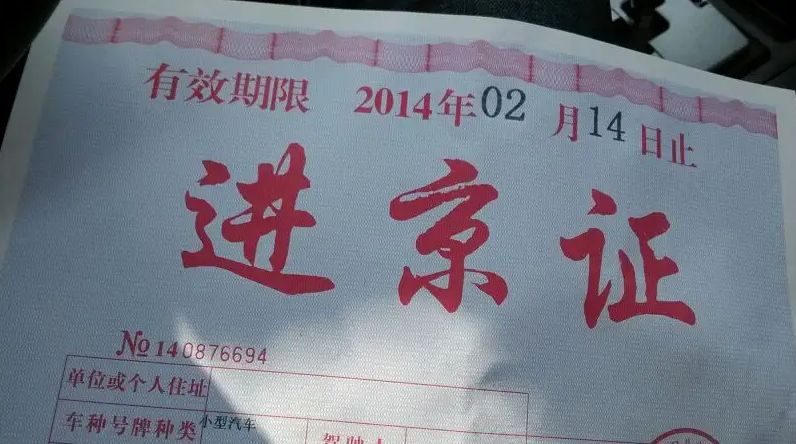 有效期限 2014年02月14日止
进京证
№ 140876694
单位或个人住址
车种号牌种类 小型汽车
驾驶人